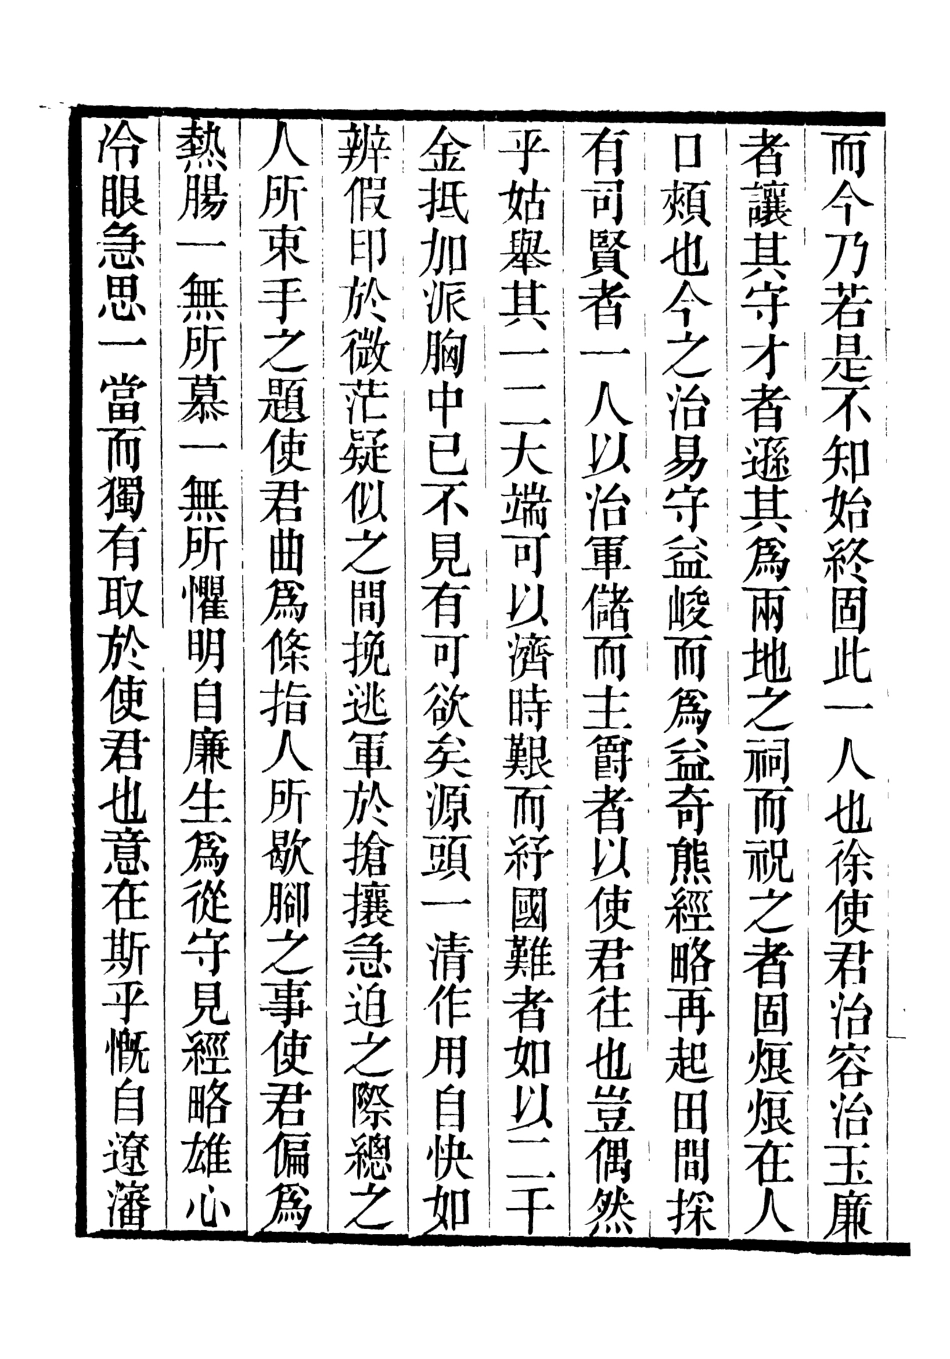 而今乃若是不知始終固此一人也徐使君治容治玉廉
者讓其守才者遜其爲兩地之祠而祝之者固烺烺在人
口頰也今之治易守益峻而爲益奇熊經略再起田間採
有司賢者一人以治軍儲而主爵者以使君往也豈偶然
乎姑舉其一二大端可以濟時艱而紓國難者如以二千
金抵加派胸中已不見有可欲矣源頭一清作用自快如
辨假印於微茫疑似之間挽逃軍於搶攘急迫之際總之
人所束手之題使君曲爲條指人所歇腳之事使君偏爲
熱腸一無所慕一無所懼明自廉生爲從守見經略雄心
冷眼急思一當而獨有取於使君也意在斯乎慨自遼瀋